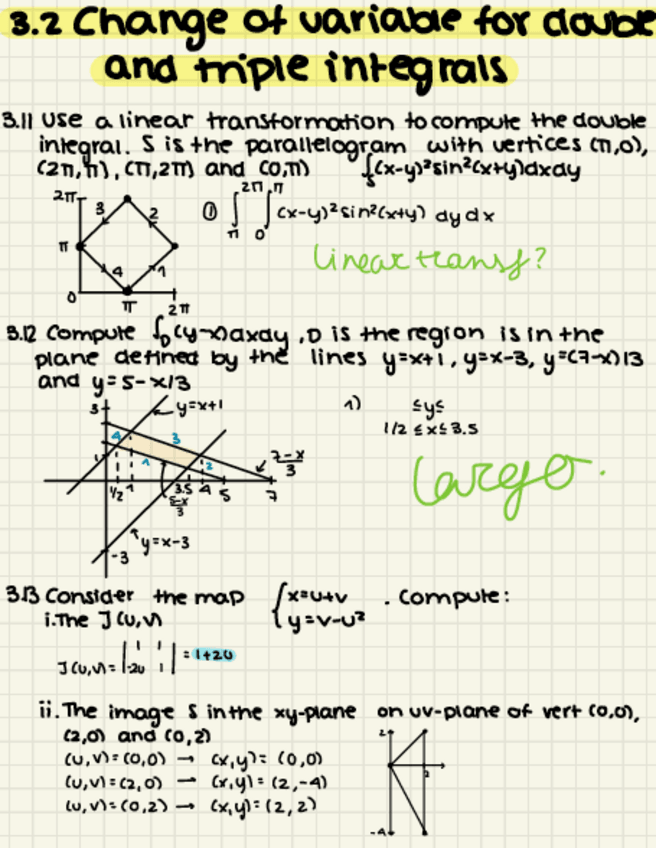 3.2 Change of variable for double
and triple integrals
3.11 Use a linear transformation to compute the double
integral. S is the parallelogram with vertices (π,0),
(2π,π), (π,2π) and (0,π) ∫s(x-y)²sin²(x+y)dxdy
2π
3
2
① ∫π^2π ∫0^π (x-y)²sin²(x+y) dy dx
π
4
1
linear transf?
0
π
2π
3.12 Compute ∫D(y-x)dxdy, D is the region is in the
plane defined by the lines y=x+1, y=x-3, y=(7-x)/3
and y=5-x/3
3
y=x+1
1) ≤y≤
1/2 ≤x≤3.5
4
3
1
2
7-x/3
largo.
1/2
1
3.5
4
5
7
5-x/3
y=x-3
-3
3.13 Consider the map {x=u+v . Compute:
i.The J(u,v) y=v-u²
J(u,v)=|1 1
-2u 1| = 1+2u
ii. The image S in the xy-plane on uv-plane of vert (0,0),
(2,0) and (0,2)
(u,v)=(0,0) → (x,y)=(0,0)
(u,v)=(2,0) → (x,y)=(2,-4)
(u,v)=(0,2) → (x,y)=(2,2)
2
2
-4